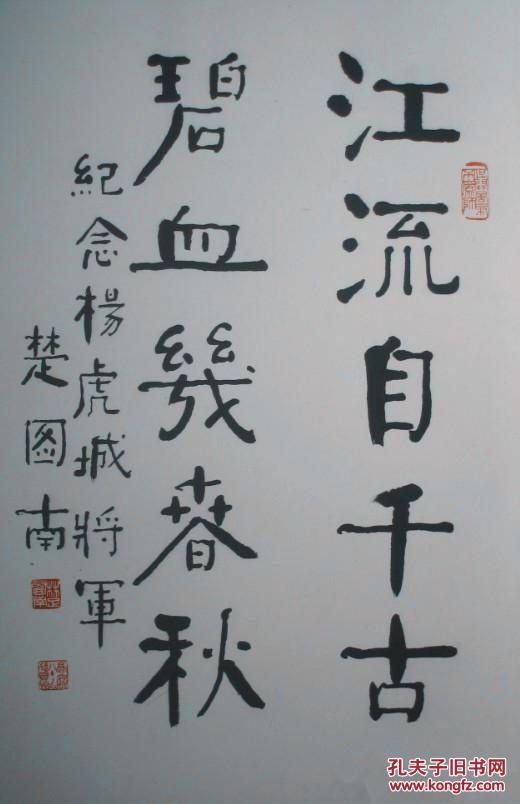 江流自千古
碧血幾春秋
紀念楊虎城將軍
楚圖南
孔夫子旧书网
www.kongfz.com